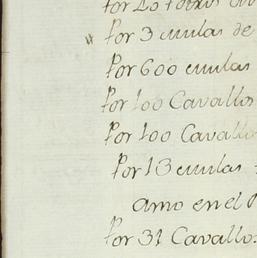 Por 20 Potros
Por 3 mulas de
Por 600 mulas
Por 100 Cavallos
Por 100 Cavallo
Por 13 mulas
amo en el
Por 31 Cavallos